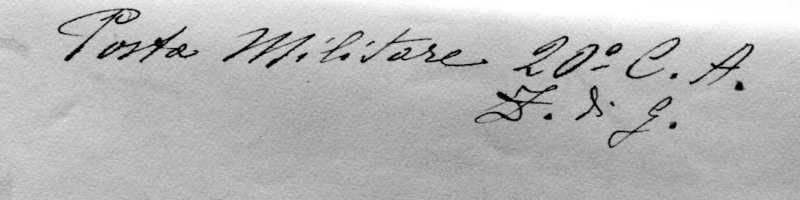 Posta Militare 20º C. A.
Z. di g.